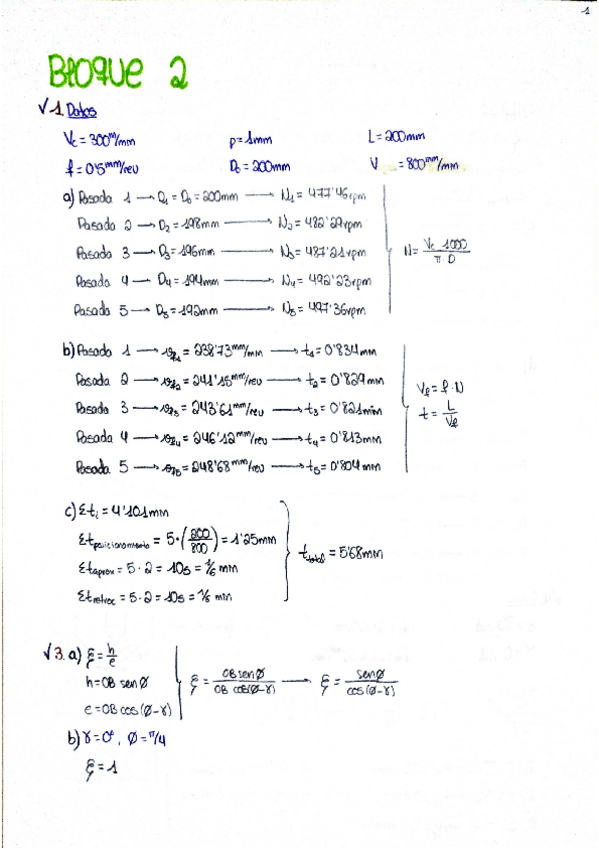 1
Bloque 2
√ 1. Datos
Vc = 300 m/min p = 1mm L = 200mm
f = 0'5 mm/rev D₀ = 200mm V = 800 mm/min
a) Pasada 1 → D₁ = D₀ = 200mm → N₁ = 477'46rpm
Pasada 2 → D₂ = 198mm → N₂ = 482'29rpm
Pasada 3 → D₃ = 196mm → N₃ = 487'21rpm
Pasada 4 → D₄ = 194mm → N₄ = 492'23rpm
Pasada 5 → D₅ = 192mm → N₅ = 497'36rpm
N = Vc · 1000 / π · D
b) Pasada 1 → vf₁ = 238'73 mm/min → t₁ = 0'834min
Pasada 2 → vf₂ = 241'15 mm/rev → t₂ = 0'829min
Pasada 3 → vf₃ = 243'61 mm/rev → t₃ = 0'821min
Pasada 4 → vf₄ = 246'12 mm/rev → t₄ = 0'813min
Pasada 5 → vf₅ = 248'68 mm/rev → t₅ = 0'804 min
Vf = f · N
t = L / Vf
c) Σti = 4'101min
Σt posicionamiento = 5 · (200/800) = 1'25min
Σt aprox = 5 · 2 = 10s = 1/6 min
Σt retroc = 5 · 2 = 10s = 1/6 min
t total = 5'68min
√ 3. a) ξ = h/e
h = OB sen Ø
e = OB cos (Ø-γ)
ξ = OB sen Ø / OB cos (Ø-γ) → ξ = sen Ø / cos (Ø-γ)
b) γ = 0º, Ø = π/4
ξ = 1